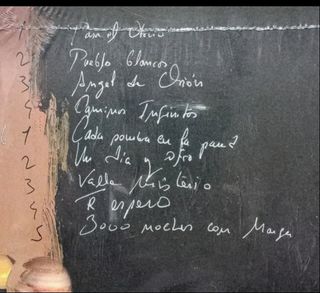 1
2 Pueblo blancos
3 Angel de Orión
4 Caminos Infinitos
1 Cada paloma en la pared
2 Un dia y otro
3 Valle Misterio
4 Te espero
5 3000 noches com Marga